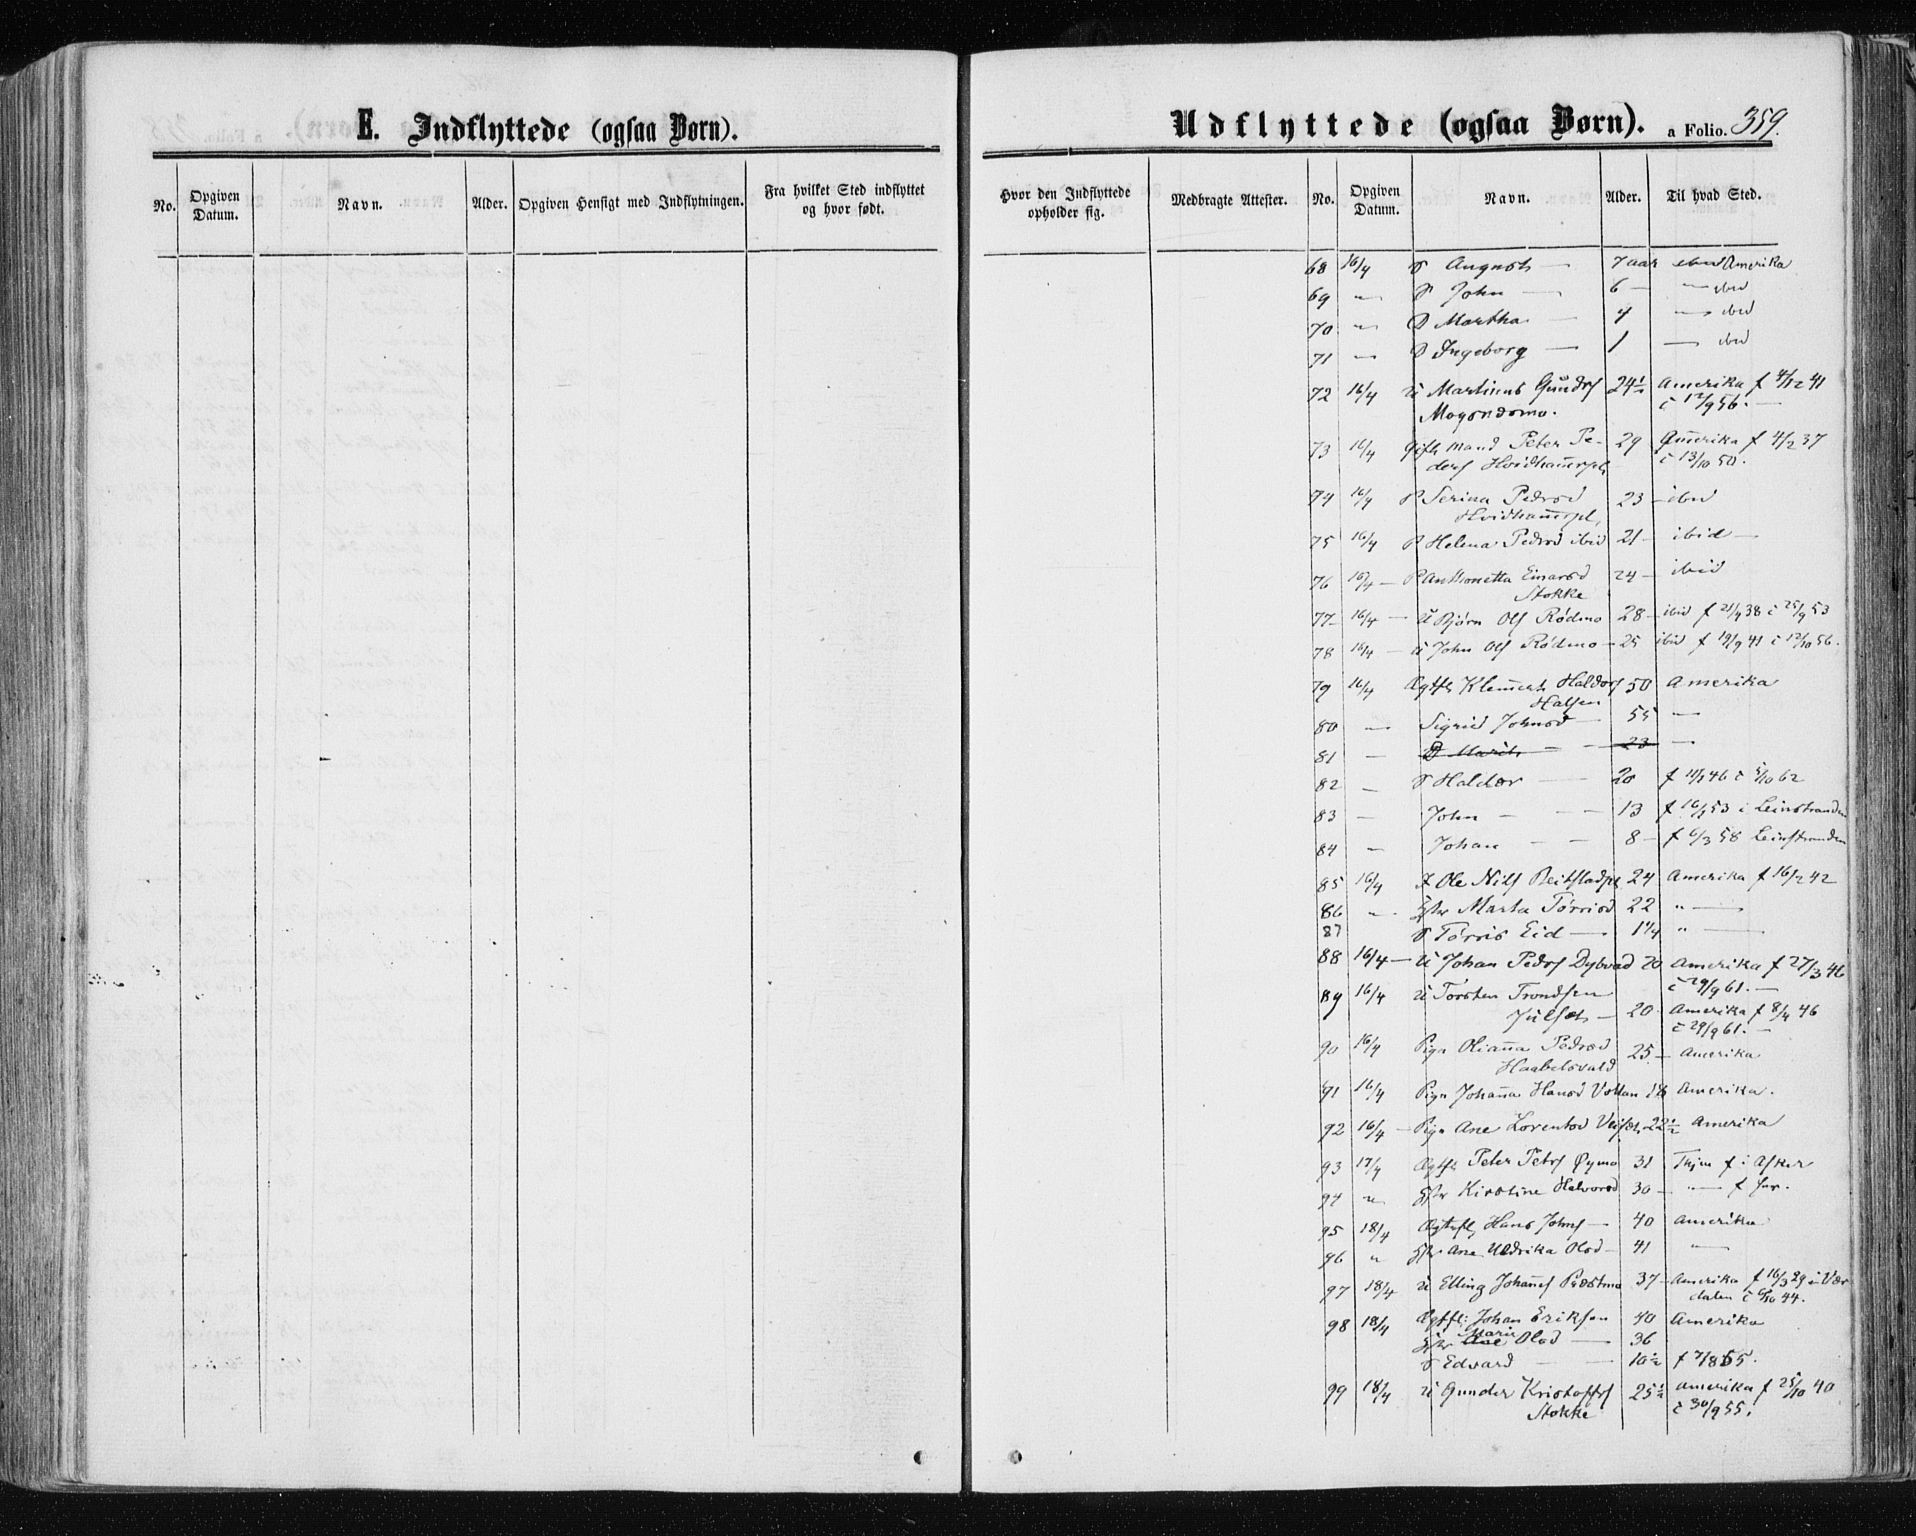 E. Indflyttede (ogsaa Børn).
No.
Opgiven Datum.
Navn.
Alder.
Opgiven Hensigt med Indflytningen.
Fra hvilket Sted indflyttet og hvor født.
Udflyttede (ogsaa Børn). a Folio. 359.
Hvor den Indflyttede opholder sig.
Medbragte Attester.
No.
Opgiven Datum.
Navn.
Alder.
Til hvad Sted.
68 16/4 August — 7 aar Amerika
69 " John — 6 — ibid
70 " Martha — 4 — ibid
71 — Ingeborg — 1 — ibid
72 16/4 u Martinus 24½ Amerika f 4/12 41
c 12/9 56. —
73 16/4 Gift Mand Peter Pe- 29 Amerika f 4/2 37
ders c 13/10 50.
74 16/4 P Serina Pedrsd 23 — ibid
75 16/4 P Helena Pedrsd ibid 21 — ibid —
76 16/4 — P Anthonetta Einarsd 24 — ibid
Stokke
77 — 16/4 — u Bjørn Ols Rødmo 28 — ibid f 21/4 38 c 25/9 53
78 16/4 — u John Ols Rødmo — 25 ibid f 19/9 41 c 12/10 56.
79 16/4 Klement Haldors 50 Amerika
Halsen
80 — Sigrid Johnsd — 55 —
81 — D Marit — 23 —
82 — S Haldor — 20 46 c 5/10 62
83 — John — 13 f 16/1 53 i Leinstranden
84 — Johan — 8 — f 6/3 58 Leinstranden
85 16/4 Ole Nils 24 Amerika f 16/2 42
86 " Marta Tørrisd 22 " —
87 S Tørris Eid — 1¼ " —
88 16/4 — u Johan Pedrs Dybvad 20 Amerika f 27/3 46
c 29/9 61. —
89 16/4 u Torsten Trondsen
Julset — 20 Amerika f 8/4 46
c 29/9 61. —
90 16/4 Pige Oliana Pedrsd
25 — Amerika
91 16/4 Pige Johana Hansd Amerika.
92 16/4 — Pige Ane Lorentsd 22½ Amerika
93 17/4 Peter Petrs Øymo 31 Thjm f i Asker
94 " Kirstine Halvorsd 30 — " —
95 18/4 Hans Johns — 40 Amerika
96 " Ane Uldrika Olsd — 41 " —
97 18/4 u Elling Johanes 37 — Amerika f 16/3 29 i Vær
dalen c 6/10 44.
98 18/4 Johan Eriksen 40 Amerika
Marie
Ane Olsd — 36
S Edvard — 10½
99 18/4 u Gunder Kristoffrs 25½ Amerika f 25/10 40
Stokke c 30/9 55.